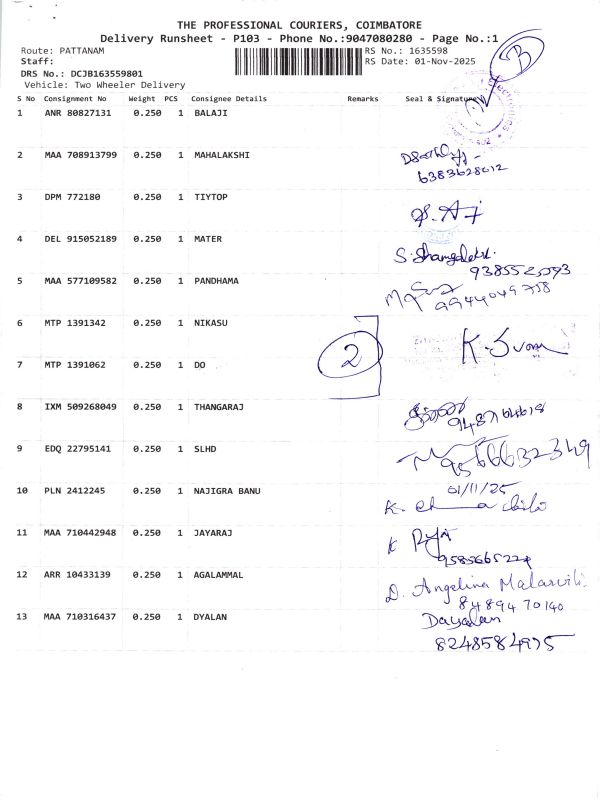 THE PROFESSIONAL COURIERS, COIMBATORE
Delivery Runsheet - P103 - Phone No.:9047080280 - Page No.:1
Route: PATTANAM RS No.: 1635598
Staff: RS Date: 01-Nov-2025
DRS No.: DCJB163559801
Vehicle: Two Wheeler Delivery
B
S No Consignment No Weight PCS Consignee Details Remarks Seal & Signature
1 ANR 80827131 0.250 1 BALAJI
2 MAA 708913799 0.250 1 MAHALAKSHI
6383628612
3 DPM 772180 0.250 1 TIYTOP
4 DEL 915052189 0.250 1 MATER
S.
5 MAA 577109582 0.250 1 PANDHAMA
9944049758
6 MTP 1391342 0.250 1 NIKASU
2
7 MTP 1391062 0.250 1 DO
8 IXM 509268049 0.250 1 THANGARAJ
9 EDQ 22795141 0.250 1 SLHD
9566632349
10 PLN 2412245 0.250 1 NAJIGRA BANU 01/11/25
K.
11 MAA 710442948 0.250 1 JAYARAJ
K
12 ARR 10433139 0.250 1 AGALAMMAL
D. Angelina
8489470140
13 MAA 710316437 0.250 1 DYALAN Dayalan
8248584975